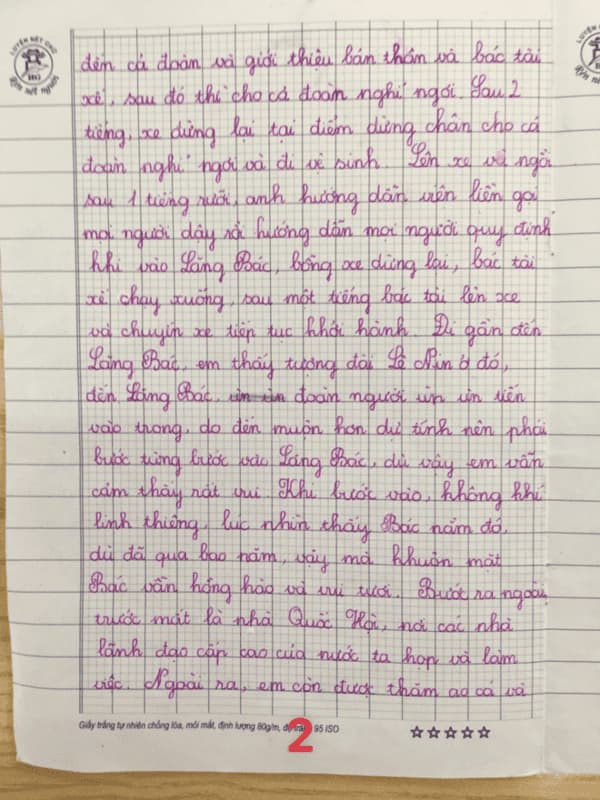 LUYỆN NÉT CHỮ
RÈN NẾT NGƯỜI
đến cả đoàn và giới thiệu bản thân và bác tài
xế, sau đó thì cho cả đoàn nghỉ ngơi. Sau 2
tiếng, xe dừng lại tại điểm dừng chân cho cả
đoàn nghỉ ngơi và đi vệ sinh. Lên xe và ngồi
sau 1 tiếng rưỡi, anh hướng dẫn viên liền gọi
mọi người dậy rồi hướng dẫn mọi người quy định
khi vào Lăng Bác, bỗng xe dừng lại, bác tài
xế chạy xuống, sau một tiếng bác tài lên xe
và chuyến xe tiếp tục khởi hành. Đi gần đến
Lăng Bác, em thấy tượng đài Lê Nin ở đó,
đến Lăng Bác, đoàn người ùn ùn tiến
vào trong, do đến muộn hơn dự tính nên phải
bước từng bước vào Lăng Bác, dù vậy em vẫn
cảm thấy rất vui. Khi bước vào, không khí
linh thiêng, lúc nhìn thấy Bác nằm đó,
dù đã qua bao năm, vậy mà khuôn mặt
Bác vẫn hồng hào và vui tươi. Bướt ra ngoài,
trước mắt là nhà Quốc Hội, nơi các nhà
lãnh đạo cấp cao của nước ta họp và làm
việc. Ngoài ra, em còn được thăm ao cá và
Giấy trắng tự nhiên chống lóa, mỏi mắt, định lượng 80g/m, độ 95 ISO
2